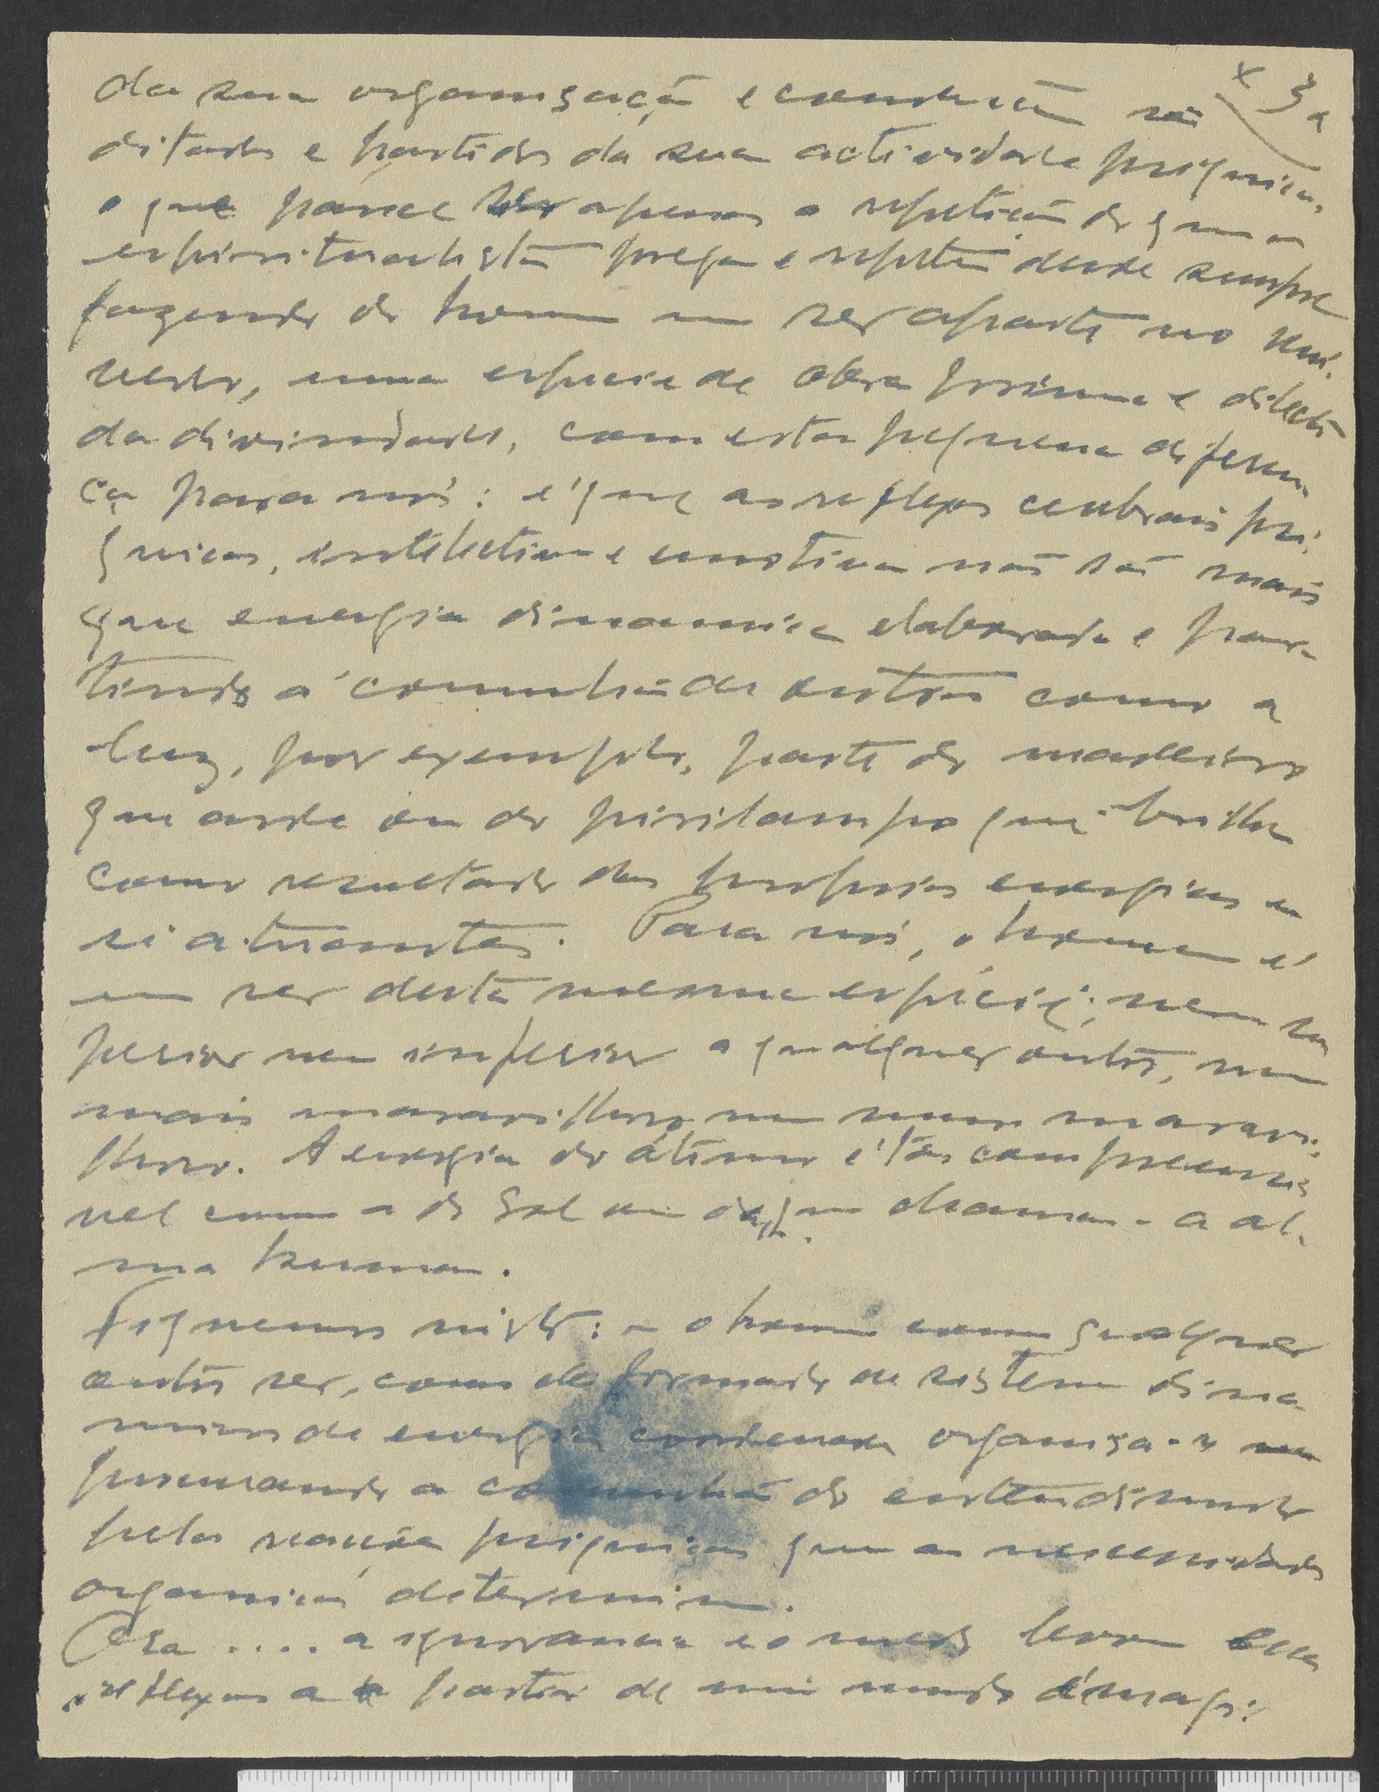 x 3a
da sua organisação e constituição são
ditados e partidos da sua actividade psiquica,
o que parece ser apenas a repetição do que os
espiritualistas pregam e repetem desde sempre
fazendo do homem um ser aparte no Uni-
verso, uma especie de obra prima e dilecta
da divindade, com esta pequena diferen-
ça para nós: é que as reflexos cerebrais psi-
quicos, intelectivos e emotivos não são mais
que energia dinamica elaborada e par-
tindo á comunhão de outros como a
luz, por exemplo, parte do madeiro
que arde ou do pirilampo que brilha
como resultado das proprias energias em
si atuantes. Para nós, o homem é
um ser desta mesma espécie; nem su-
perior nem inferior a qualquer outro, nem
mais maravilhoso nem menos maravi-
lhoso. A energia do átimo é tão compreensi-
vel como a do Sol ou da que chamam a al-
ma humana.
Fiquemos nisto: - o homem como qualquer
outro ser, como de formado de sistema dina-
mico de energia condensada organisa-se
procurando a comunhão do outro mundo
pelas reações psiquicas que as necessidades
organicas determinam.
Ora .... a ignorancia e o medo levou esses
reflexos a partir de um mundo imagi-